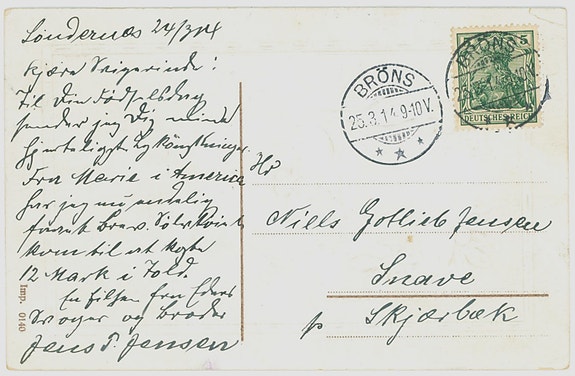 Söndernæs 24/3 14
Kjære Svigerinde!
Til Din Födselsdag
sender jeg Dig mine
hjerteligste Lykönskninger.
Fra Marie i America
har jeg nu endelig
faaet Brev.
kom til at koste
12 Mark i Told.
En hilsen fra Eders
Svoger og Broder
Jens P. Jensen
Imp. 0140
BRÖNS
25.3.14 9-10V.
BRÖNS
5
DEUTSCHES REICH
Hr
Niels Gotlieb Jensen
Snave
p Skjærbæk